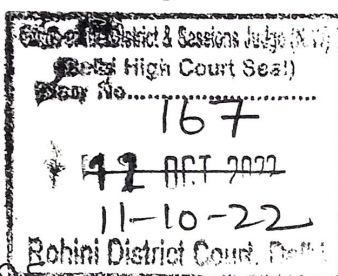 Office of the District & Sessions Judge (N.W)
(Delhi High Court Seal)
Diary No..................
167
12 OCT 2022
11-10-22
Rohini District Court, Delhi